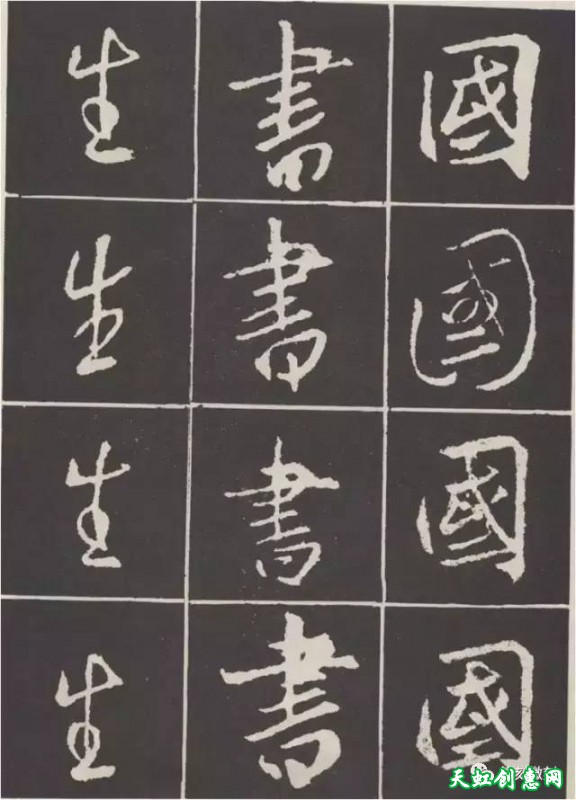 國
國
國
國
書
書
書
書
生
生
生
生
天虹创意网